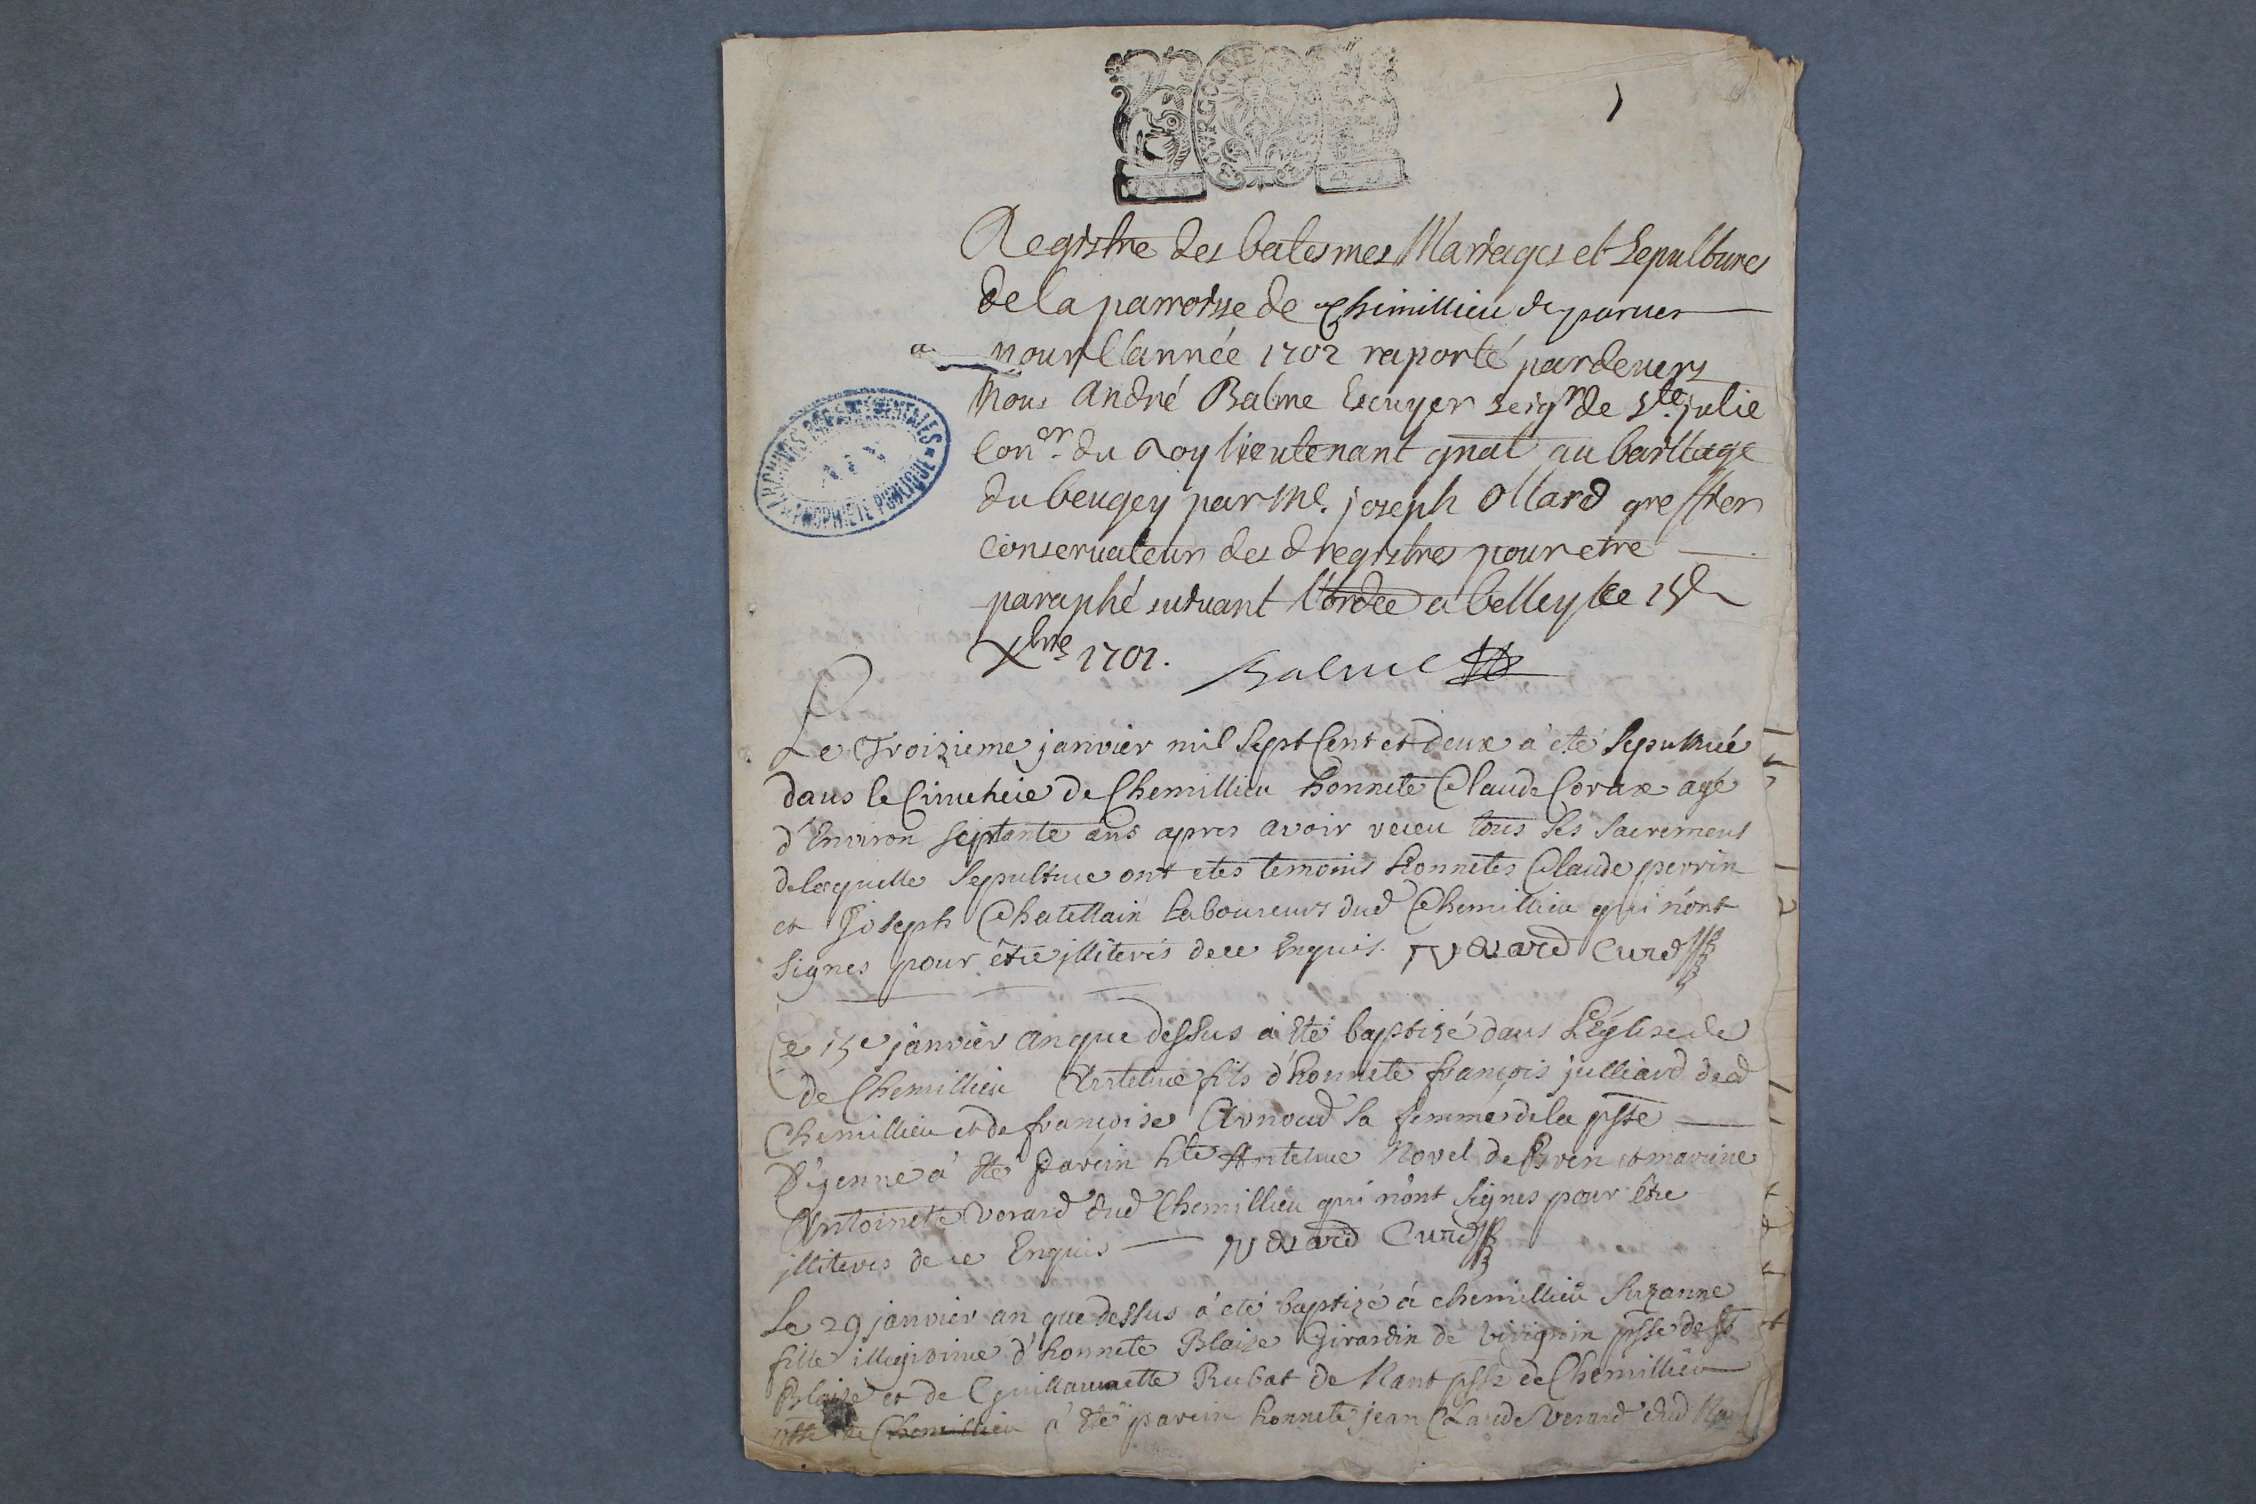 BOURGOGNE
1
Registre des batesmes Mariages et Sepultures
de la parroisse de Chimillieu de parues
pour l'année 1702 raporté pardevers
Nous André Balme Escuyer seigr de Ste julie
Coner du Roy lieutenant gnal au bailliage
du beugey par Me. joseph Ollard greffier
conservateur des d registres pour etre
paraphé suivant l'ordce a belley le 15e
Xbre 1701. Balme
Le Troizieme janvier mil Sept Cent et deux a eté Sepulturé
dans le Cimetiere de Chemillieu honnete Claude Corax agé
d'Environ septante ans apres avoir receu tous ses Sacremens
de laquelle Sepulture ont etes temoins honnetes Claude perrin
et Joseph Chatellain laboureurs dud Chemillieu qui n'ont
signes pour être jlliterés de ce Enquis. Curé
Le 15e janvier an que dessus a eté baptizé dans L'Eglise de
de Chemillieu Antelme fils d'honnete françois julliard dud
Chemillieu et de françoise Arnoud sa femme de la psse
D'yenne a eté parein hte Antelme Novel de Bren et mareine
Antoinete Verard dud Chemillieu qui n'ont signes pour Etre
jlliteres de ce Enquis Curé
Le 29 janvier an que dessus a eté baptizé a chemillieu Suzanne
fille illegitime d'honnete Blaise Girardin de virignin psse de St
Blaise et de Guillaumette Rubat de Nant psse de Chemillieu
psse de Chemillieu a eté parein honnete jean Claude Verard dud